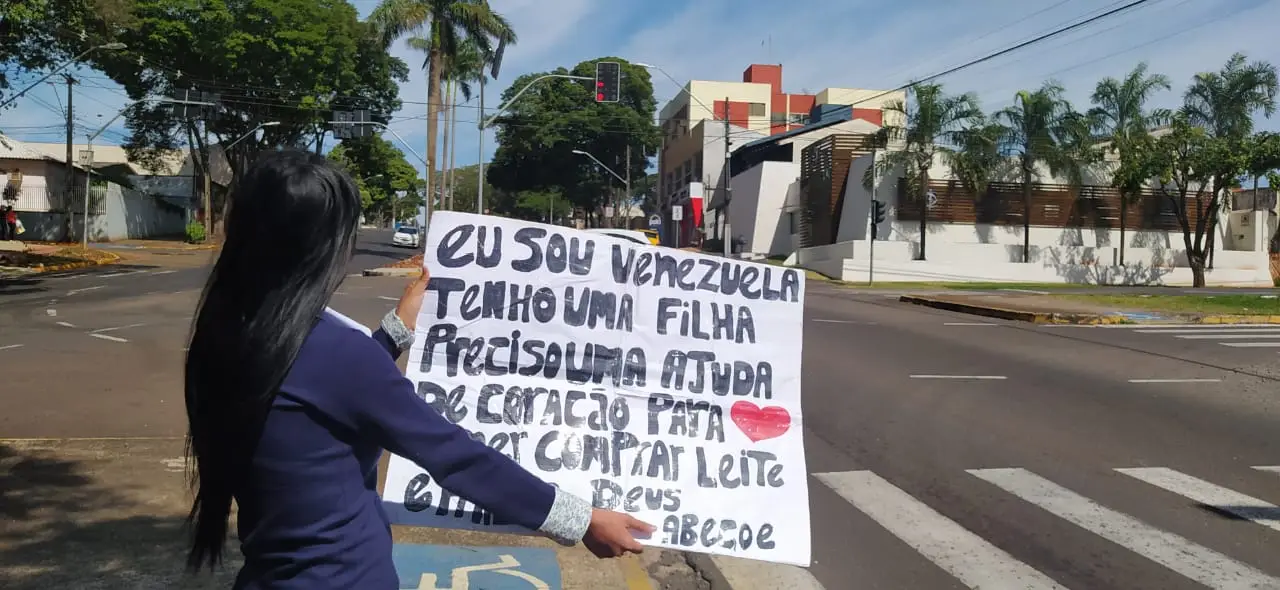 EU SOU VENEZUELA
TENHO UMA FILHA
PRECISO UMA AJUDA
DE CORACÃO PARA
COMPRAR LEITE
DEUS
ABEÇOE